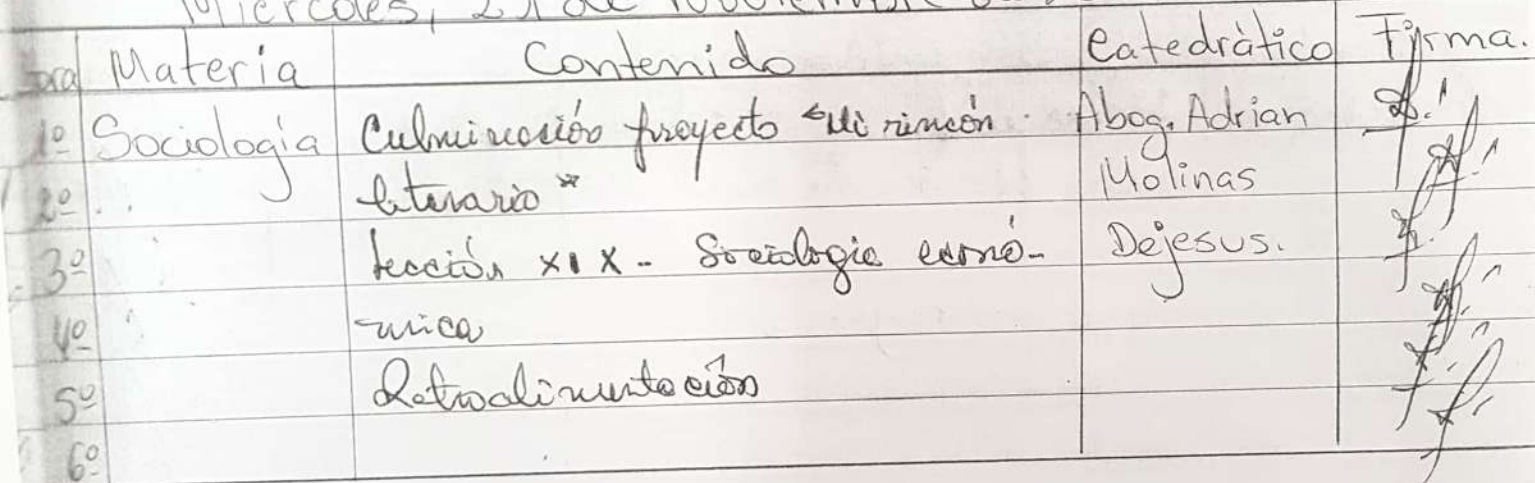 Miércoles, 21 de Noviembre
Hora Materia Contenido Catedràtico Firma.
1º Sociología Culminación proyecto "Mi rincón Abog. Adrian
2º .. literario" Molinas
3º Lección XIX - Sociologia econó- Dejesus.
4º mica
5º Retroalimentación
6º